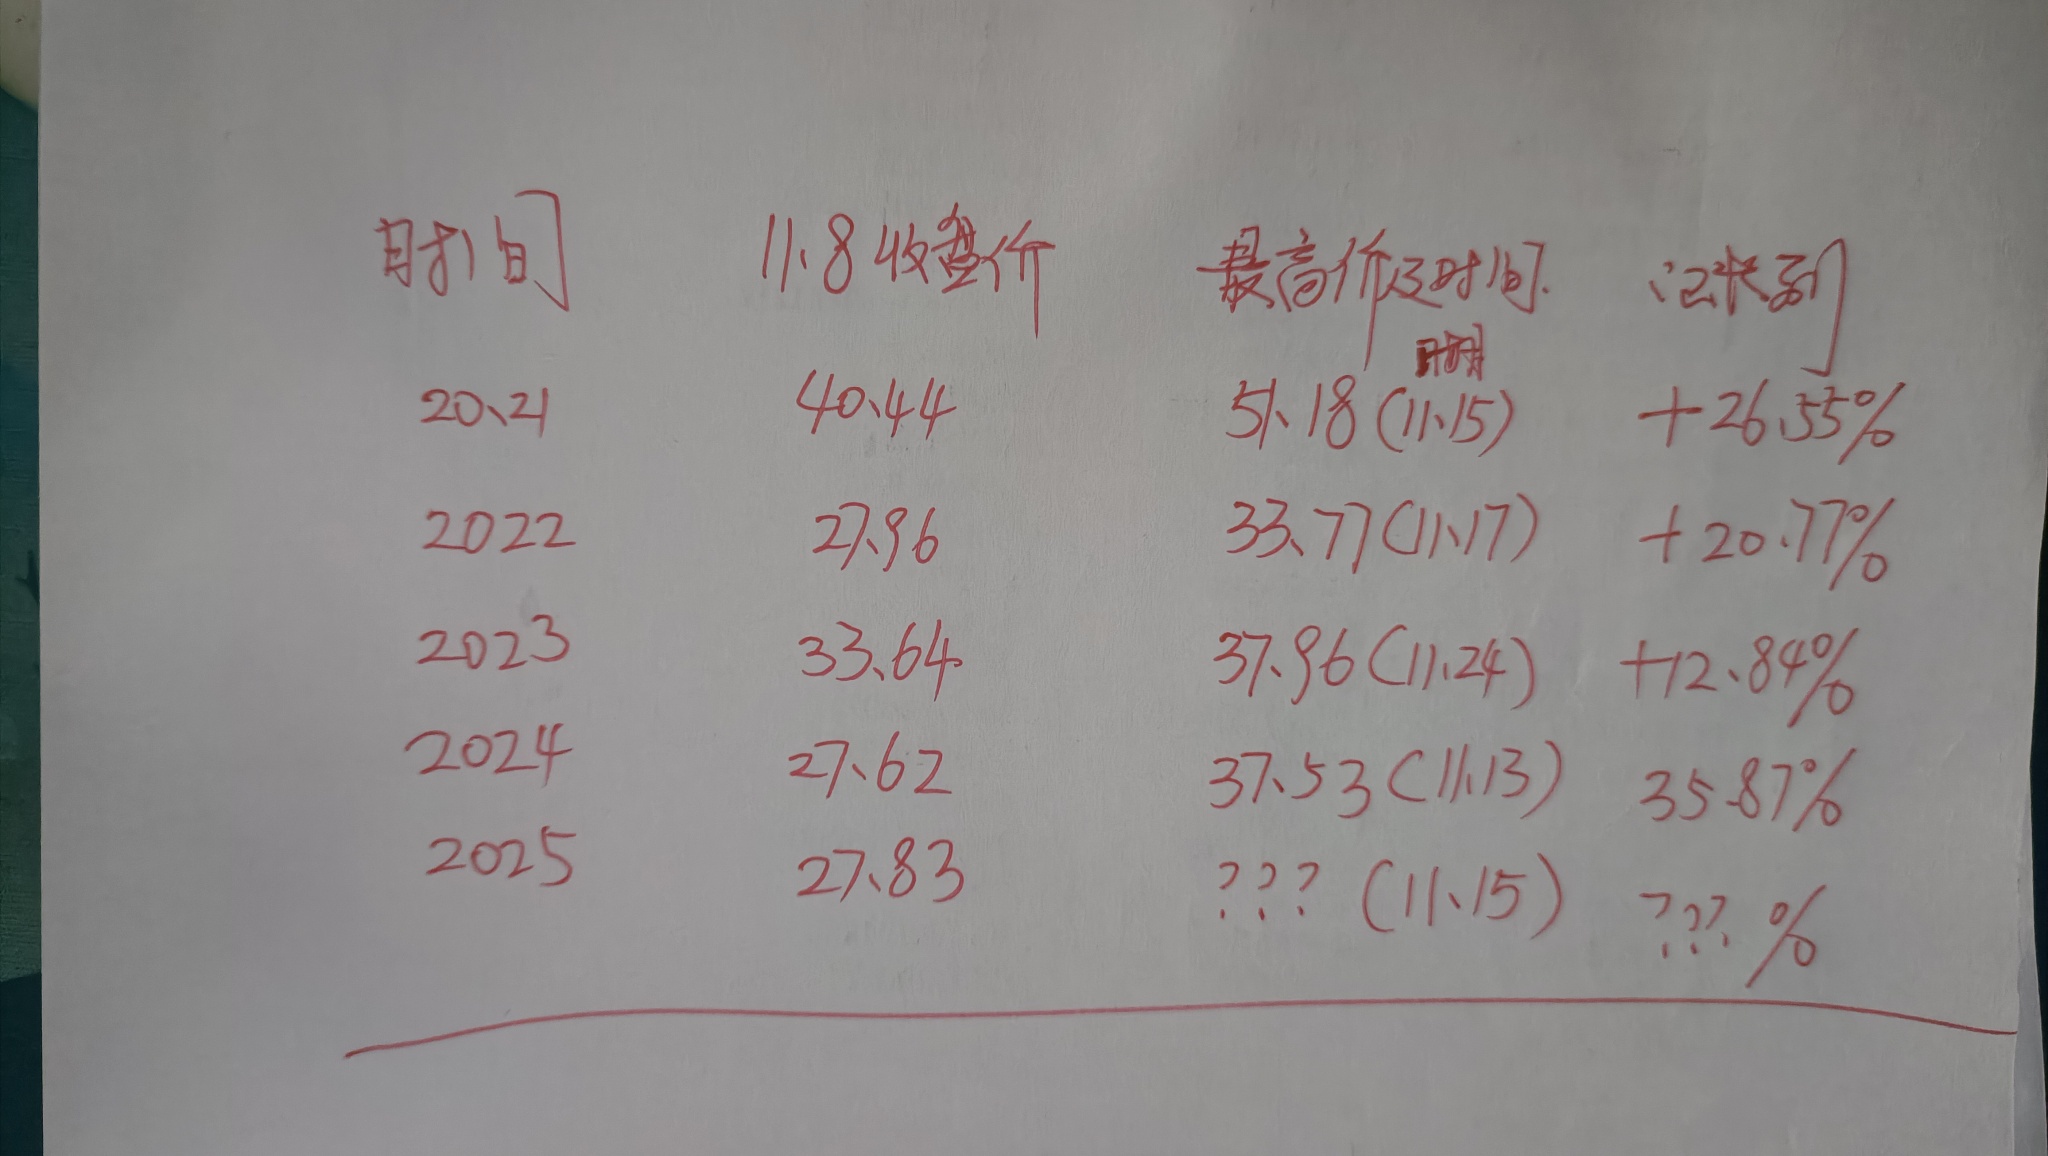 时间 11.8收盘价 最高价及时间
日期
20.21 40.44 51.18(11.15) +26.55%
2022 27.96 33.77(11.17) +20.77%
2023 33.64 37.96(11.24) +12.84%
2024 27.62 37.53(11.13) 35.87%
2025 27.83 ???(11.15) ???%